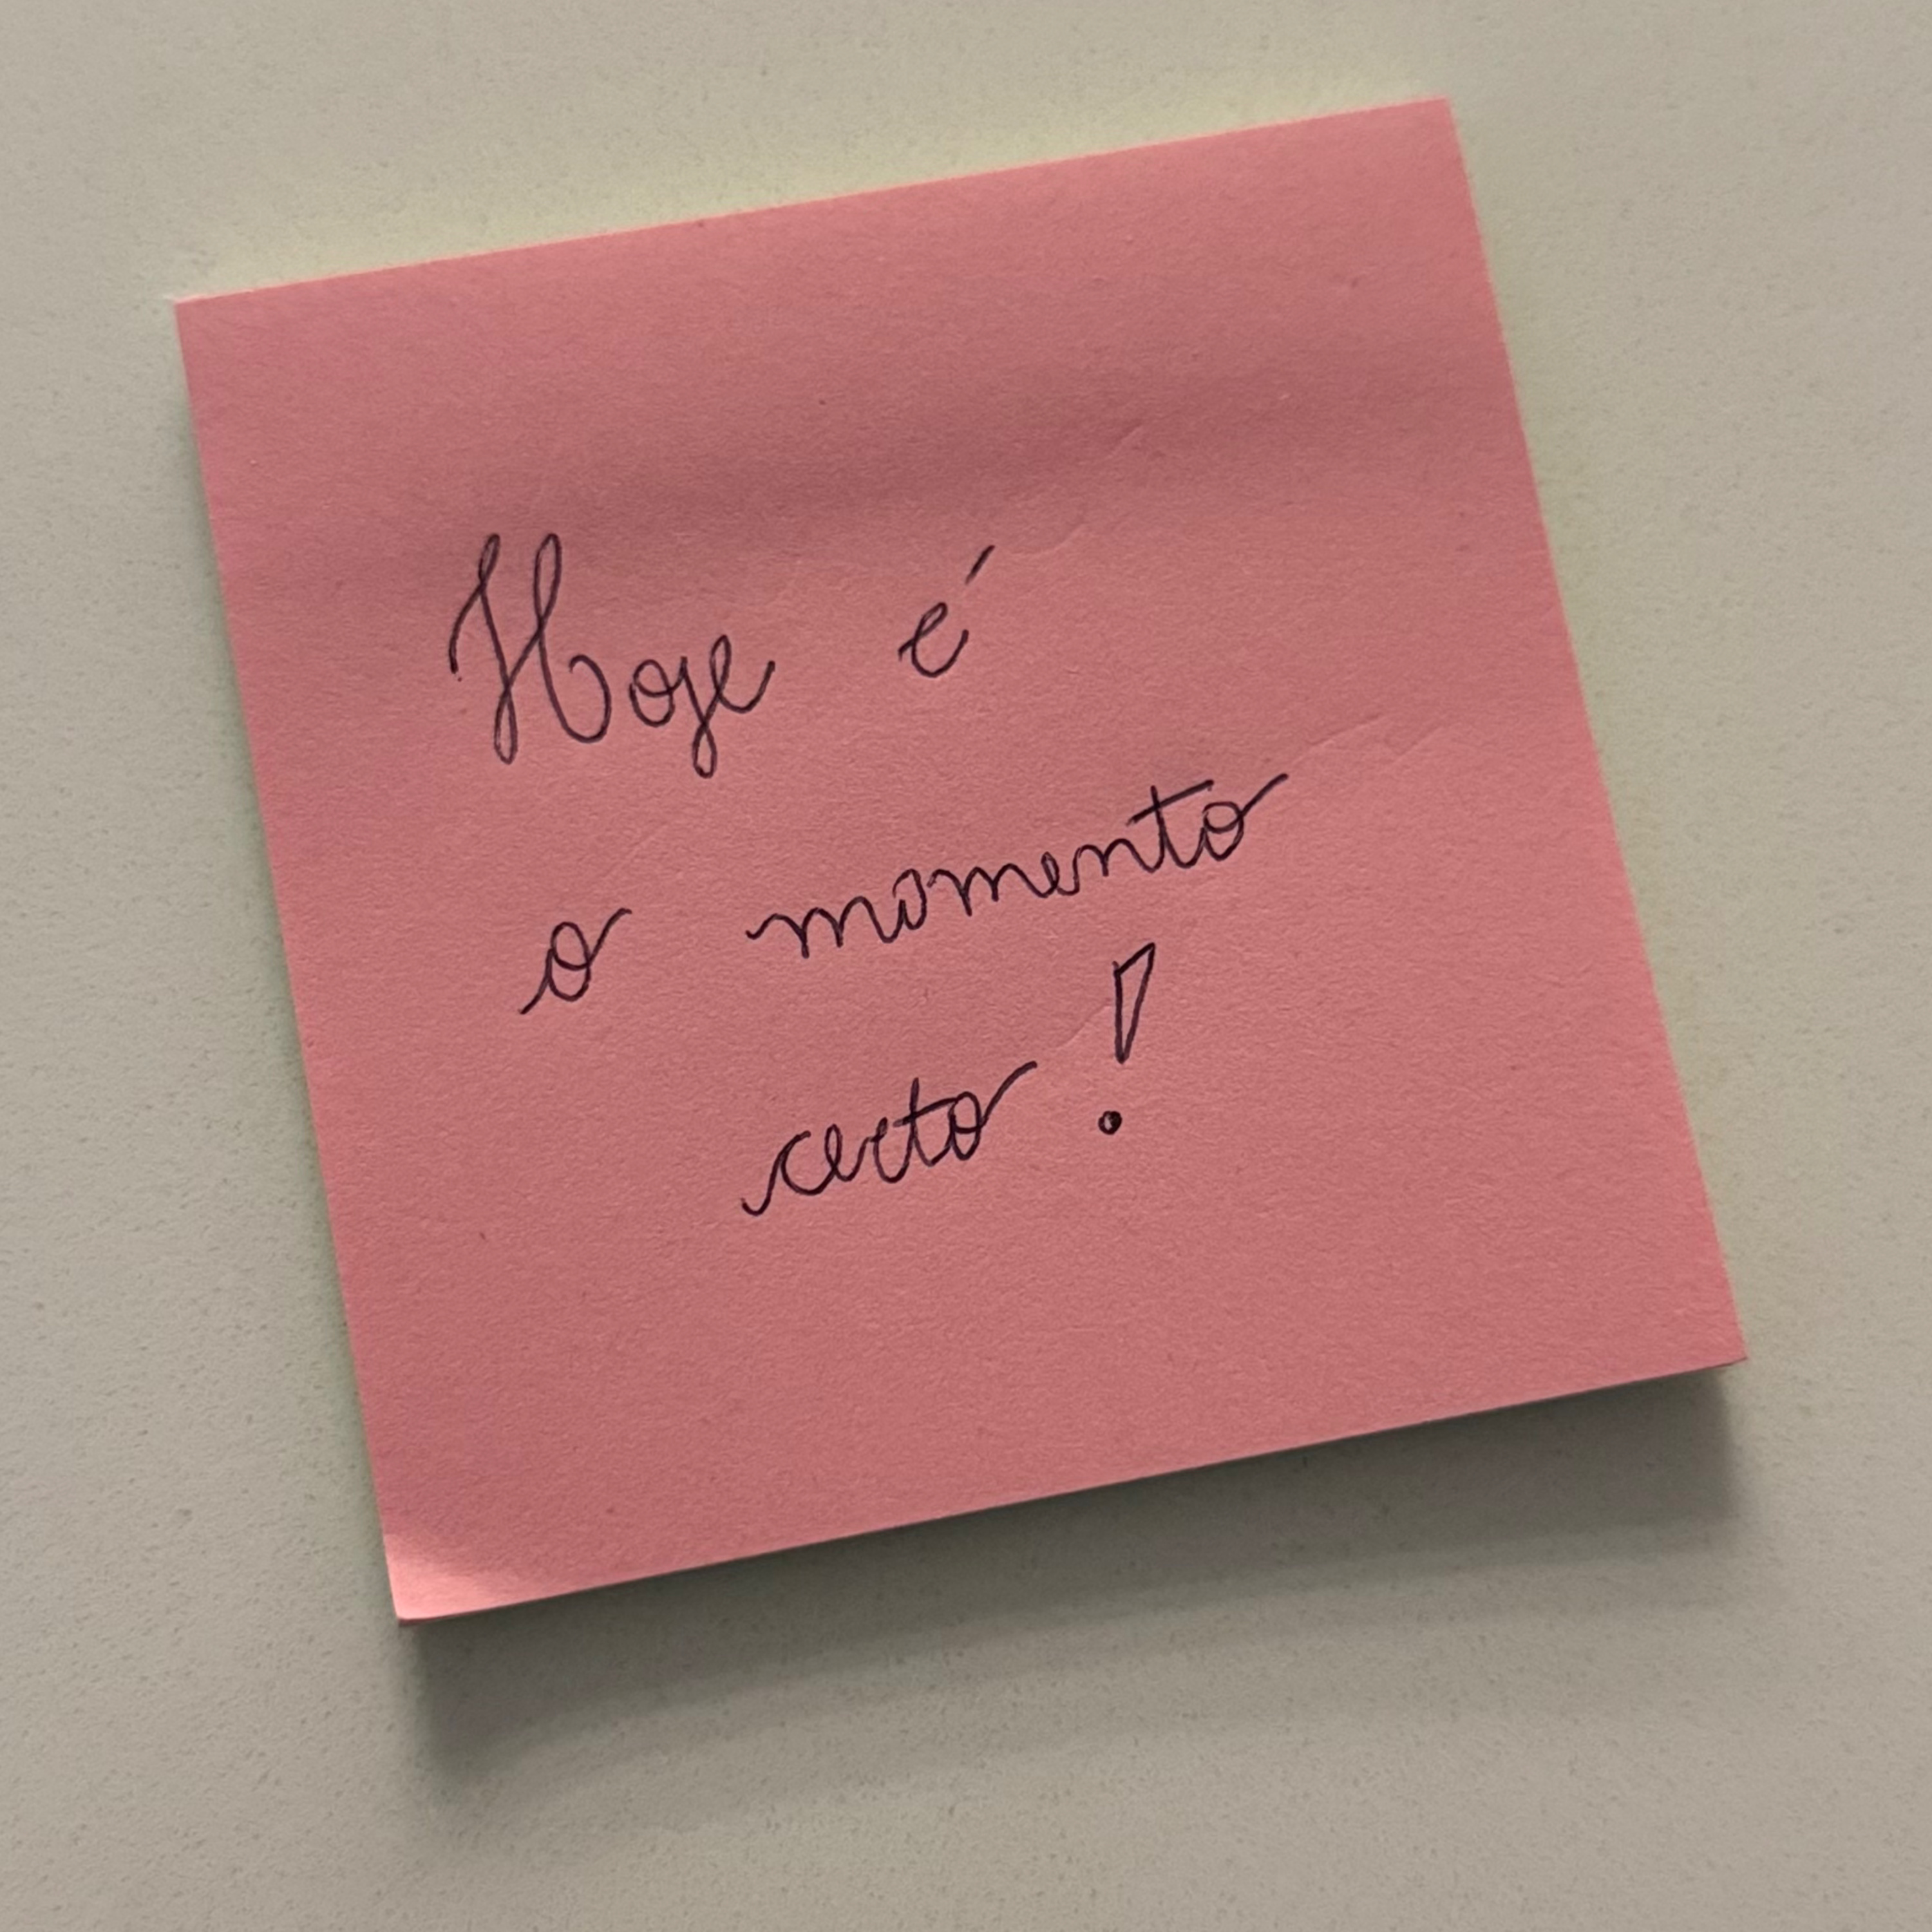 Hoje é
o momento
certo!